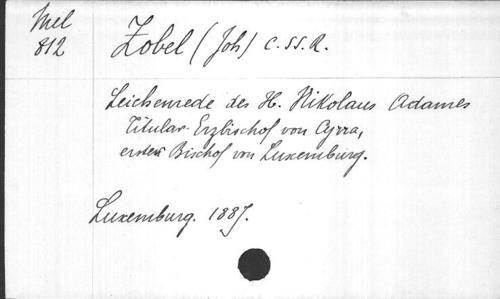 Mel
812
Zobel (Joh) C. SS. R.
Leichenrede des H. Nikolaus Adames
Titular-Erzbischof von Cyrra,
ersten Bischof von Luxemburg.
Luxemburg. 1887.